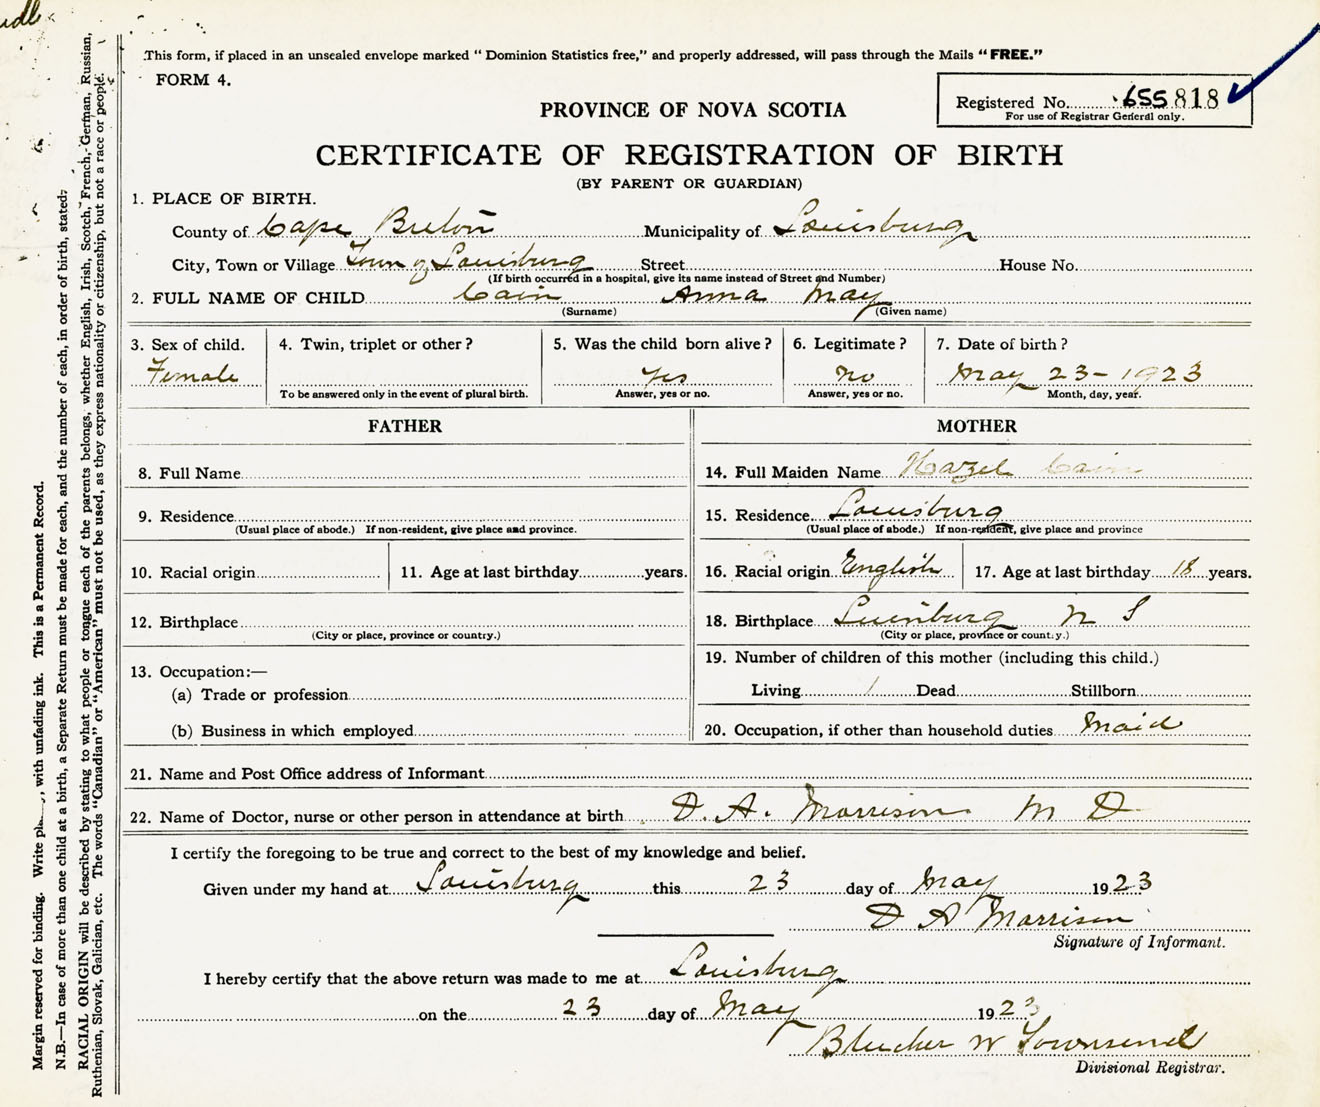 This form, if placed in an unsealed envelope marked "Dominion Statistics free," and properly addressed, will pass through the Mails "FREE."
FORM 4.
Registered No. 655818
For use of Registrar General only.
PROVINCE OF NOVA SCOTIA
CERTIFICATE OF REGISTRATION OF BIRTH
(BY PARENT OR GUARDIAN)
1. PLACE OF BIRTH.
County of Cape Breton Municipality of Louisburg
City, Town or Village Town of Louisburg Street House No.
(If birth occurred in a hospital, give its name instead of Street and Number)
2. FULL NAME OF CHILD Cain Anna May
(Surname) (Given name)
3. Sex of child. 4. Twin, triplet or other? 5. Was the child born alive? 6. Legitimate? 7. Date of birth?
Female yes no May 23-1923
To be answered only in the event of plural birth. Answer, yes or no. Answer, yes or no. Month, day, year.
FATHER MOTHER
8. Full Name 14. Full Maiden Name Hazel Cain
9. Residence 15. Residence Louisburg
(Usual place of abode.) If non-resident, give place and province. (Usual place of abode.) If non-resident, give place and province
10. Racial origin 11. Age at last birthday years. 16. Racial origin English 17. Age at last birthday 18 years.
12. Birthplace 18. Birthplace Louisburg N S
(City or place, province or country.) (City or place, province or country.)
19. Number of children of this mother (including this child.)
13. Occupation:—
(a) Trade or profession Living 1 Dead Stillborn
(b) Business in which employed 20. Occupation, if other than household duties Maid
21. Name and Post Office address of Informant
22. Name of Doctor, nurse or other person in attendance at birth D. A. Morrison M D
I certify the foregoing to be true and correct to the best of my knowledge and belief.
Given under my hand at Louisburg this 23 day of May 1923
D A Morrison
Signature of Informant.
I hereby certify that the above return was made to me at Louisburg
on the 23 day of May 1923
Bleucher W Townsend
Divisional Registrar.
Margin reserved for binding. Write , with unfading ink. This is a Permanent Record.
N.B.—In case of more than one child at a birth, a Separate Return must be made for each, and the number of each, in order of birth, stated.
RACIAL ORIGIN will be described by stating to what people or tongue each of the parents belongs, whether English, Irish, Scotch, French, German, Russian,
Ruthenian, Slovak, Galician, etc. The words "Canadian" or "American" must not be used, as they express nationality or citizenship, but not a race or people.